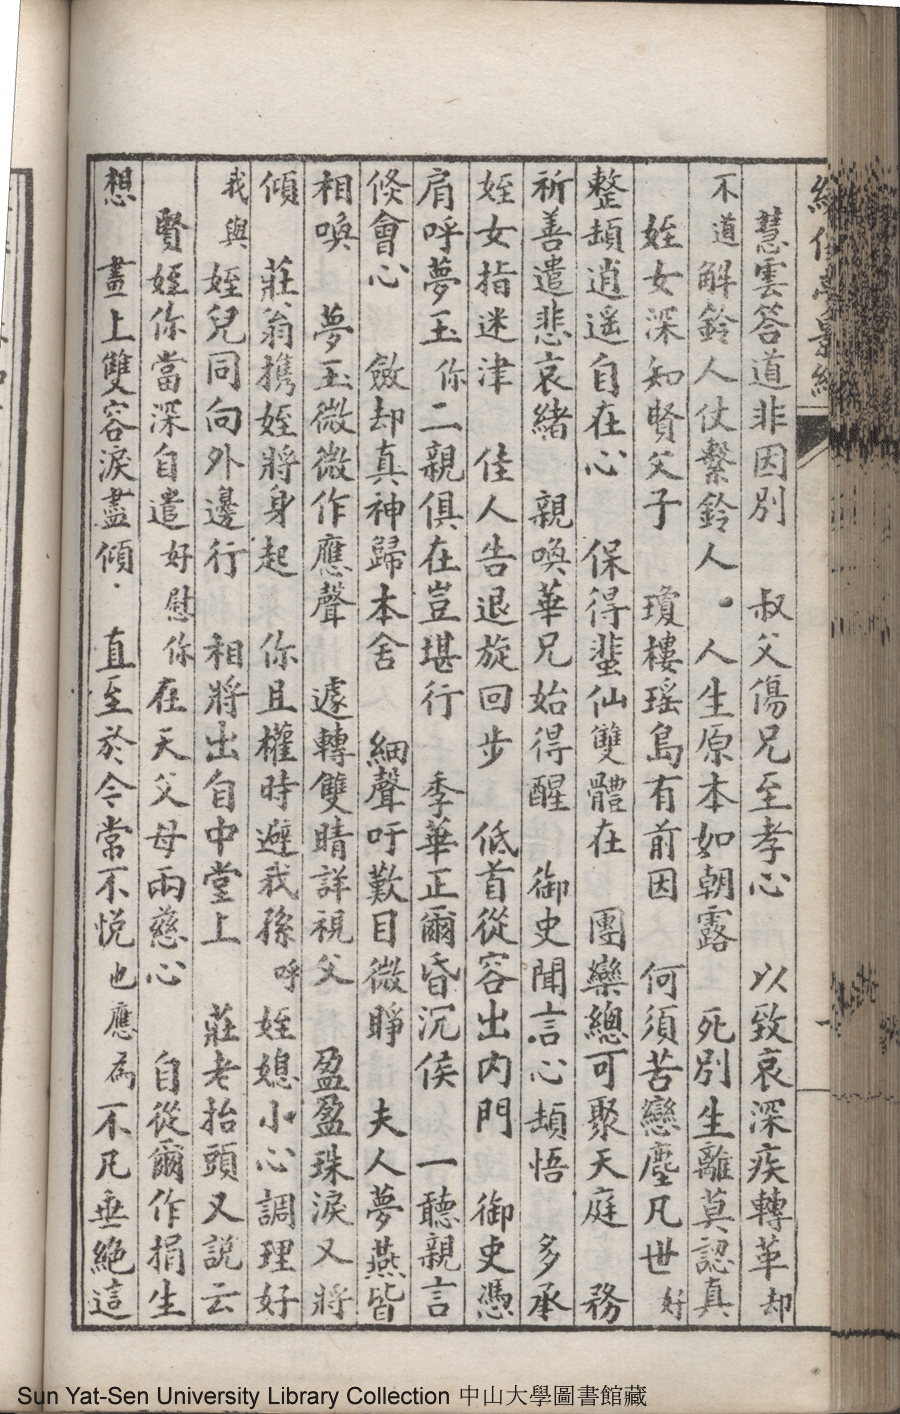 慧雲答道非因別　叔父傷兄至孝心　以致哀深疾轉革却
不道解鈴人仗繫鈴人．人生原本如朝露　死別生離莫認真
姪女深知賢父子　瓊樓瑤島有前因　何須苦戀塵凡世好
整頓逍遥自在心　保得蜚仙雙體在　團欒總可聚天庭　務
祈善遣悲哀緒　親喚華兄始得醒　御史聞言心頓悟　多承
姪女指迷津　佳人告退旋回步　低首從容出內門　御史憑
肩呼夢玉你二親俱在豈堪行　季華正爾昏沉侯　一聽親言
倏會心　斂却真神歸本舍　細聲吁歎目微睜　夫人夢燕皆
相喚　夢玉微微作應聲　遽轉雙睛詳視父　盈盈珠淚又將
傾　莊翁攜姪將身起　你且權時避我孫呼姪媳小心調理好
我與姪兒同向外邊行　相將出自中堂上　莊老抬頭又說云
賢姪你當深自遣好慰你在天父母兩慈心　自從爾作捐生
想　畫上雙容淚盡傾．直至於今常不悅也應為不凡垂絕這
Sun Yat-Sen University Library Collection 中山大學圖書館藏